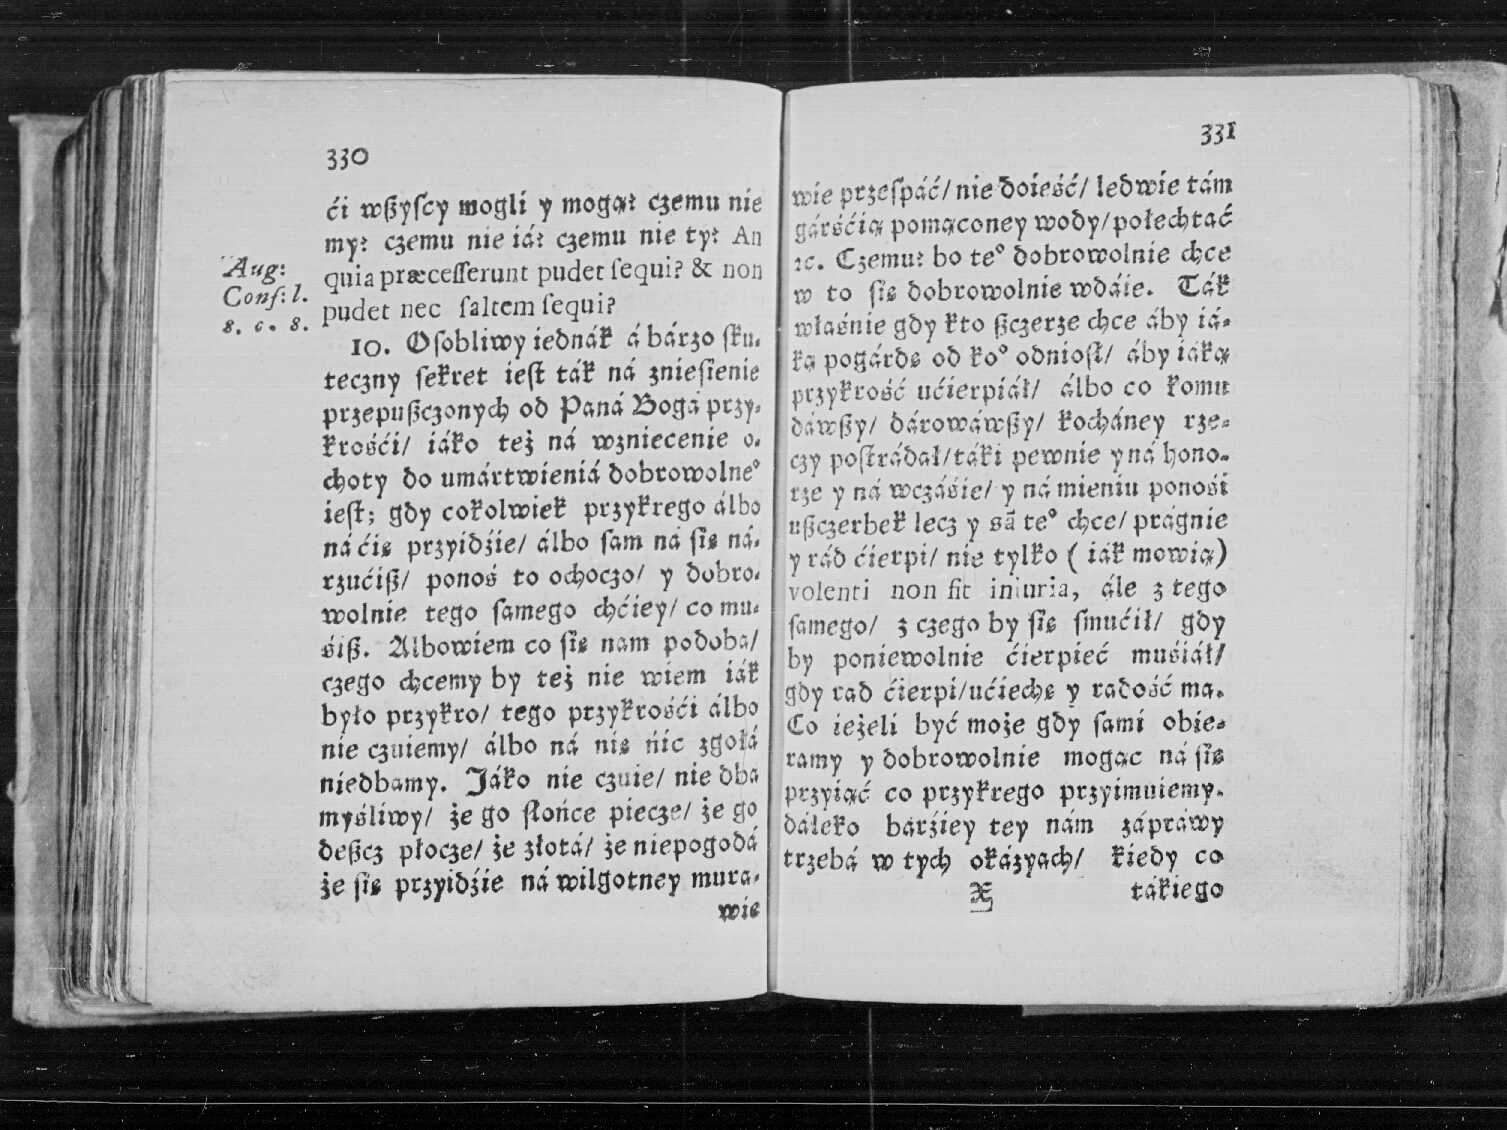 330
ći wßyſcy mogli y mogą? czemu nie
my? czemu nie iá? czemu nie ty? An
quia præceſſerunt pudet ſequi? & non
pudet nec ſaltem ſequi?
Aug:
Conf: l.
8. c. 8.
10. Oſobliwy iednák á bárzo ſku-
teczny ſekret ieſt ták ná znieſienie
przepußczonych od Paná Bogá przy-
krośći/ iáko też ná wzniecenie o-
choty do umártwieniá dobrowolne°
ieſt; gdy cokolwiek przykrego álbo
náćię przyidźie/ álbo ſam ná ſię ná-
rzućiß/ ponoś to ochoczo/ y dobro-
wolnie tego ſamego chćiey/ co mu-
śiß. Albowiem co ſię nam podoba/
czego chcemy by też nie wiem iák
było przykro/ tego przykrośći álbo
nie czuiemy/ álbo ná nię nic zgołá
niedbamy. Jáko nie czuie/ nie dba
myśliwy/ że go słońce piecze/ że go
deßcz płocze/ że złotá/ że niepogodá
że ſię przyidźie ná wilgotney mura-
wie
331
wie przeſpáć/ nie doieść/ ledwie tám
gárśćią pomąconey wody/ połechtać
ꝛc. Czemu? bo te° dobrowolnie chce
w to ſię dobrowolnie wdáie. Ták
właśnie gdy kto ßczerze chce áby iá-
ką pogárdę od ko° odnioſł/ áby iáką
przykrość ućierpiáł/ álbo co komu
dáwßy/ dárowáwßy/ kocháney rze-
czy poſtrádał/ táki pewnie y ná hono-
rze y ná wczáśie/ y ná mieniu ponośi
ußczerbek lecz y sã te° chce/ prágnie
y rád ćierpi/ nie tylko ( iák mowią)
volenti non fit iniuria, ále z tego
ſamego/ z czego by ſię ſmućił/ gdy
by poniewolnie ćierpieć muśiáł/
gdy rad ćierpi/ ućiechę y radość ma.
Co ieżeli być może gdy ſami obie-
ramy y dobrowolnie mogąc ná ſię
przyiąć co przykrego przyimuiemy.
dáleko bárźiey tey nám zápráwy
trzebá w tych okázyach/ kiedy co
X
tákiego